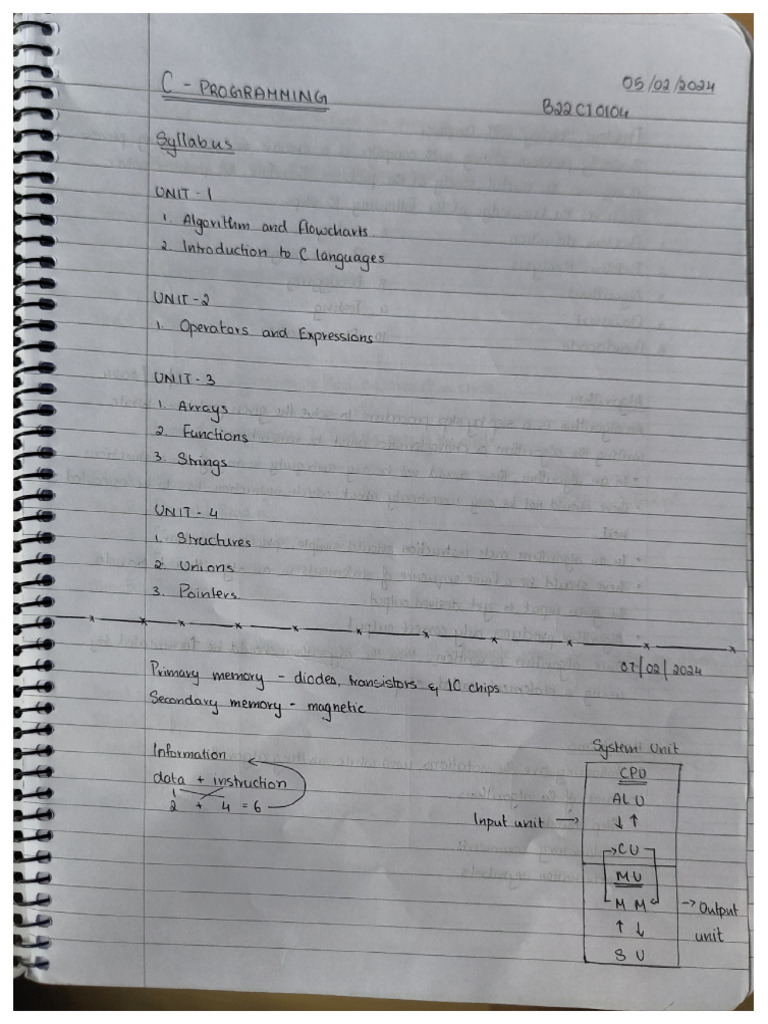 C - PROGRAMMING
05/02/2024
B22CI0104
Syllabus
UNIT - 1
1. Algorithm and flowcharts
2. Introduction to C languages
UNIT - 2
1. Operators and Expressions
UNIT - 3
1. Arrays
2. Functions
3. Strings
UNIT - 4
1. Structures
2. Unions
3. Pointers
07/02/2024
Primary memory - diodes, transistors & IC chips
Secondary memory - magnetic
Information
data + instruction
2 + 4 = 6
System Unit
CPU
ALU
Input unit →
↓↑
CU
MU
MM
→ Output
unit
↑↓
SU